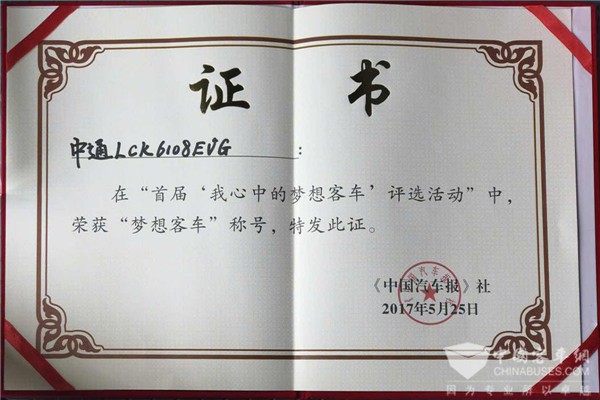 证 书
中通LCK6108EVG:
在“首届‘我心中的梦想客车’评选活动”中，
荣获“梦想客车”称号，特发此证。
《中国汽车报》社
2017年5月25日
中国客车网
CHINABUSES.COM
因为专业所以卓越